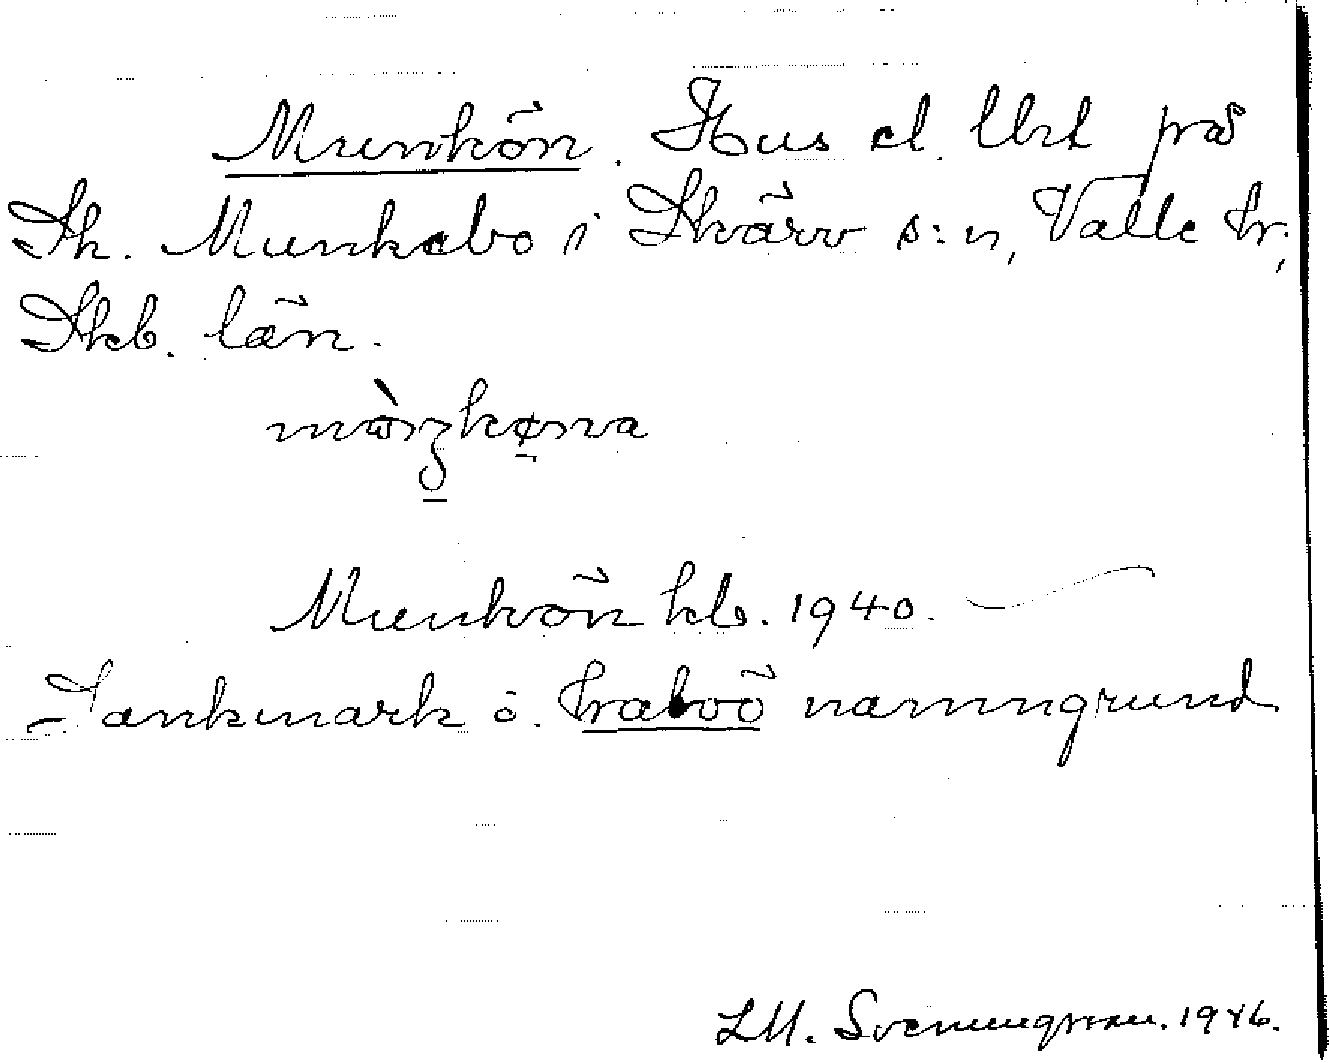 Munkön. Hus el. Uxt på
Sk. Munkebo i Skärv s:n, Valle hr;
Skb. län.
Munkön kb. 1940.
Sankmark o. kraboö namngrund
LM. Svenungsson. 1946.